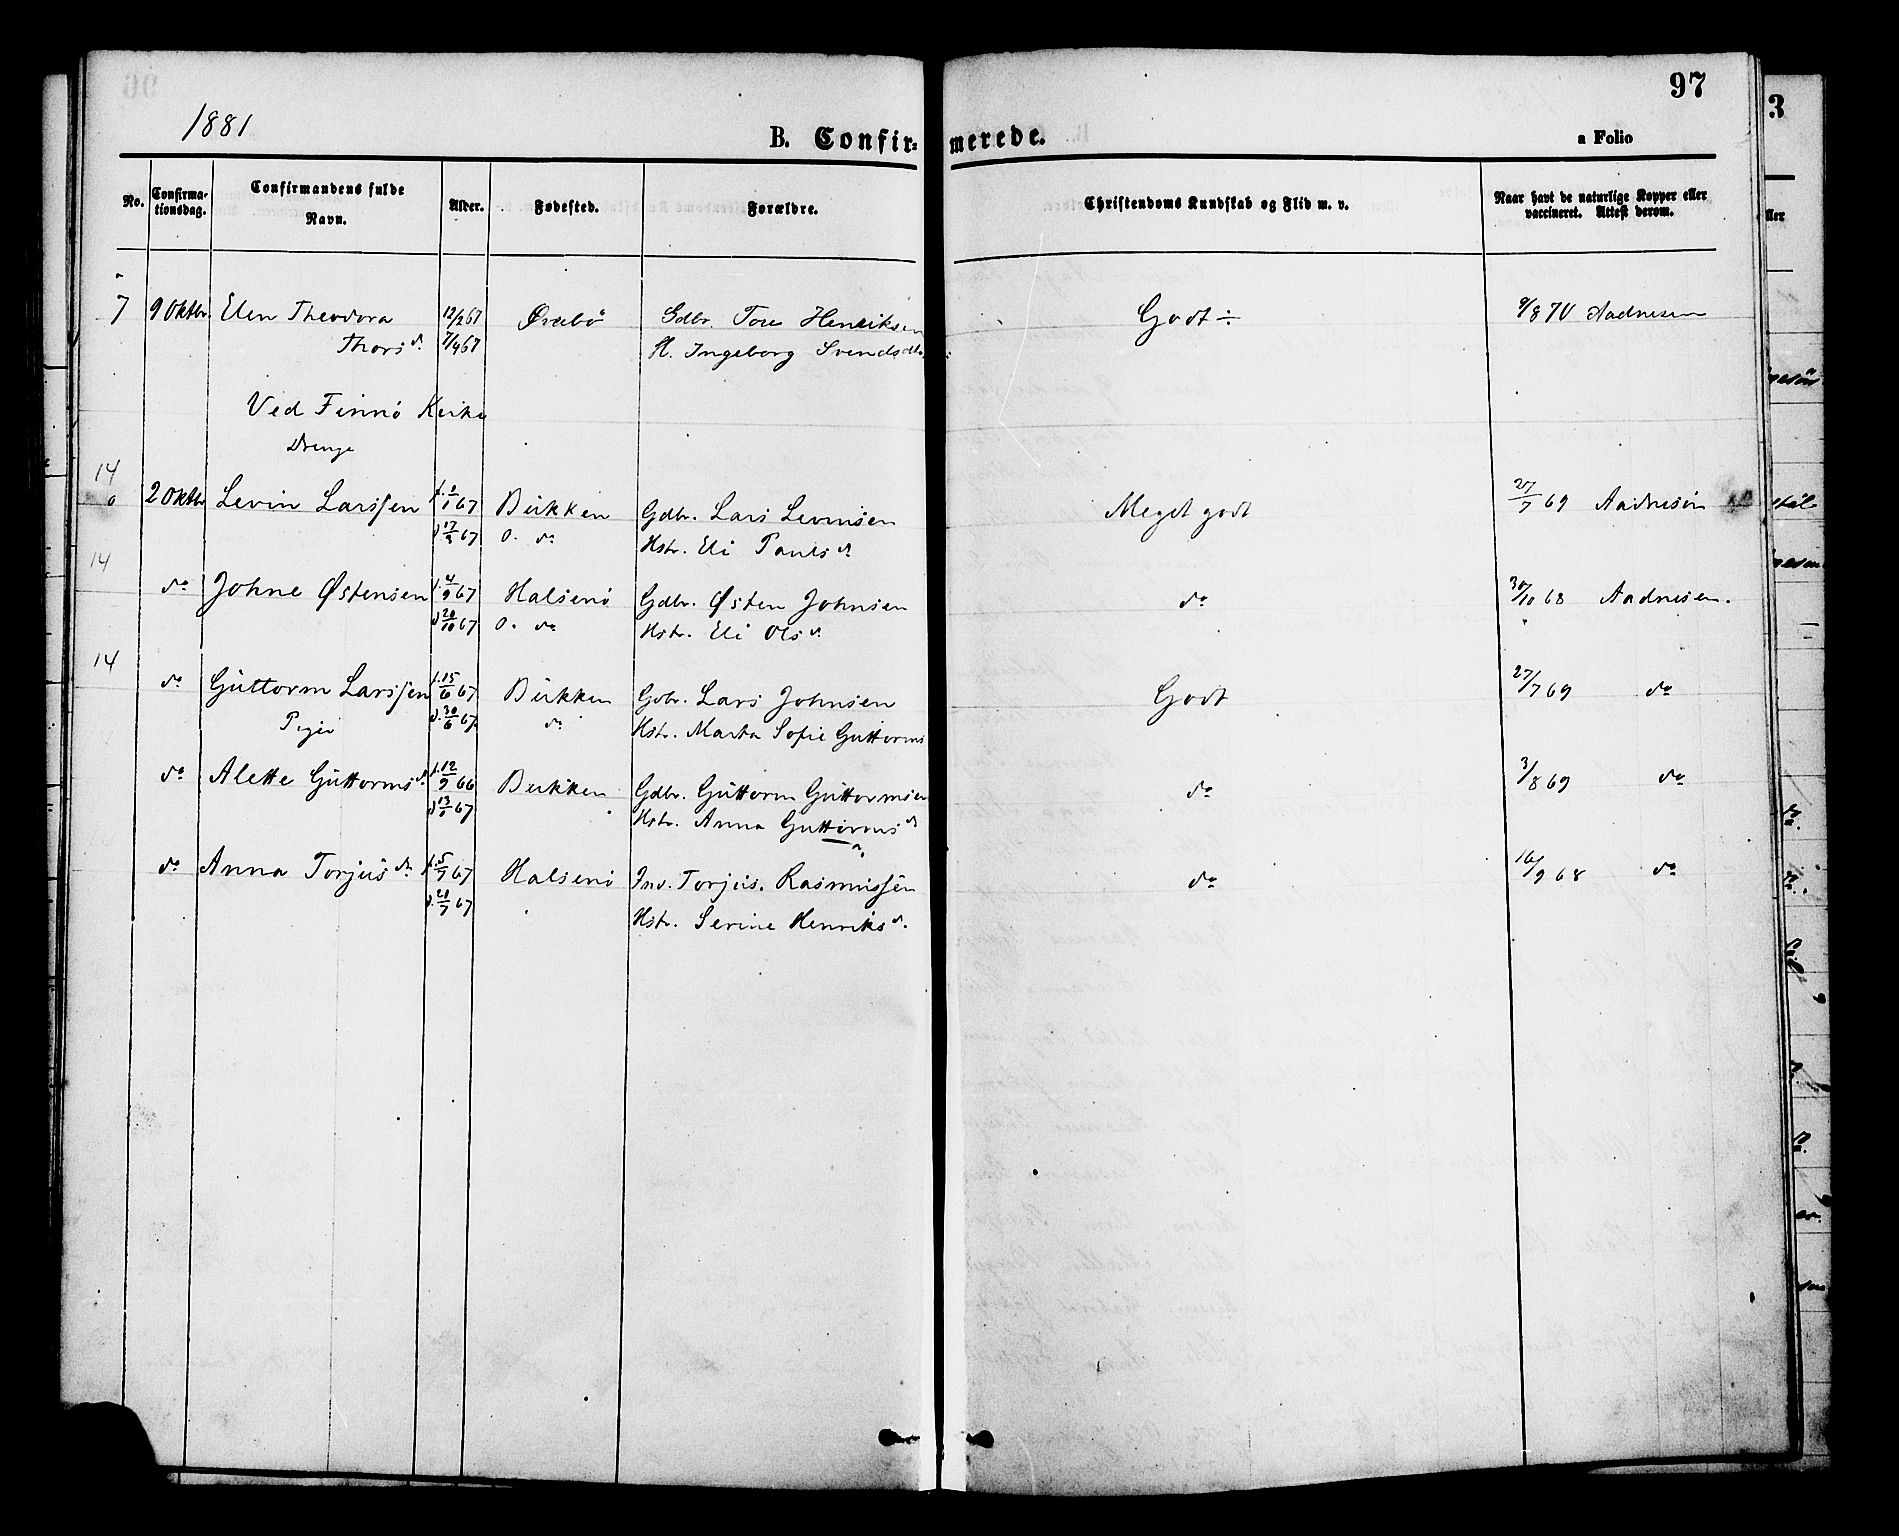 97
1881
B. Confirmerede.
a Folio
No. Confirmationsdag. Confirmandens fulde Navn. Alder. Fødested. Forældre. Christendoms Kundskab og Flid m. v. Naar havt de naturlige Kopper eller vaccineret. Attest derom.
7 9 Oktbr. Elen Theodora 12/2 67 Gdbr. Tore Henriksen Godt ÷ 9/8 70 Aadnesen
Thorsd. 7/4 67 H. Ingeborg Svendsdtr.
Ved Finnö Kirke
Drenge
14
2 Oktbr Levin Larssen f. 67 Bukken Gdbr. Lars Levinsen Meget godt 27/7 69 Aadnesen
d 17/2 67 o. do Hstr. Eli Paulsd.
14
do Johne Østensen f. 4/9 67 Halsenö Gdbr. Østen Johnsen do 30/10 68 Aadnesen.
d 20/10 67 o. do Hstr. Eli Olsd.
14
do Guttorm Larssen f. 15/6 67 Bukken Gdbr. Lars Johnsen Godt 27/7 69 do
Piger d. 30/6 67 do Hstr. Marta Sofie Guttorms
do Alette Guttormsd. f. 12/9 66 Bukken Gdbr. Guttorm Guttormsen do 3/8 69 do
d 13/ 67 Hstr. Anna Guttormsd.
do Anna Torjusd. f. 5/7 67 Halsenö Ind. Torjus. Rasmussen do 16/9 68 do
d. 21/7 67 Hstr. Serine Henriksd.